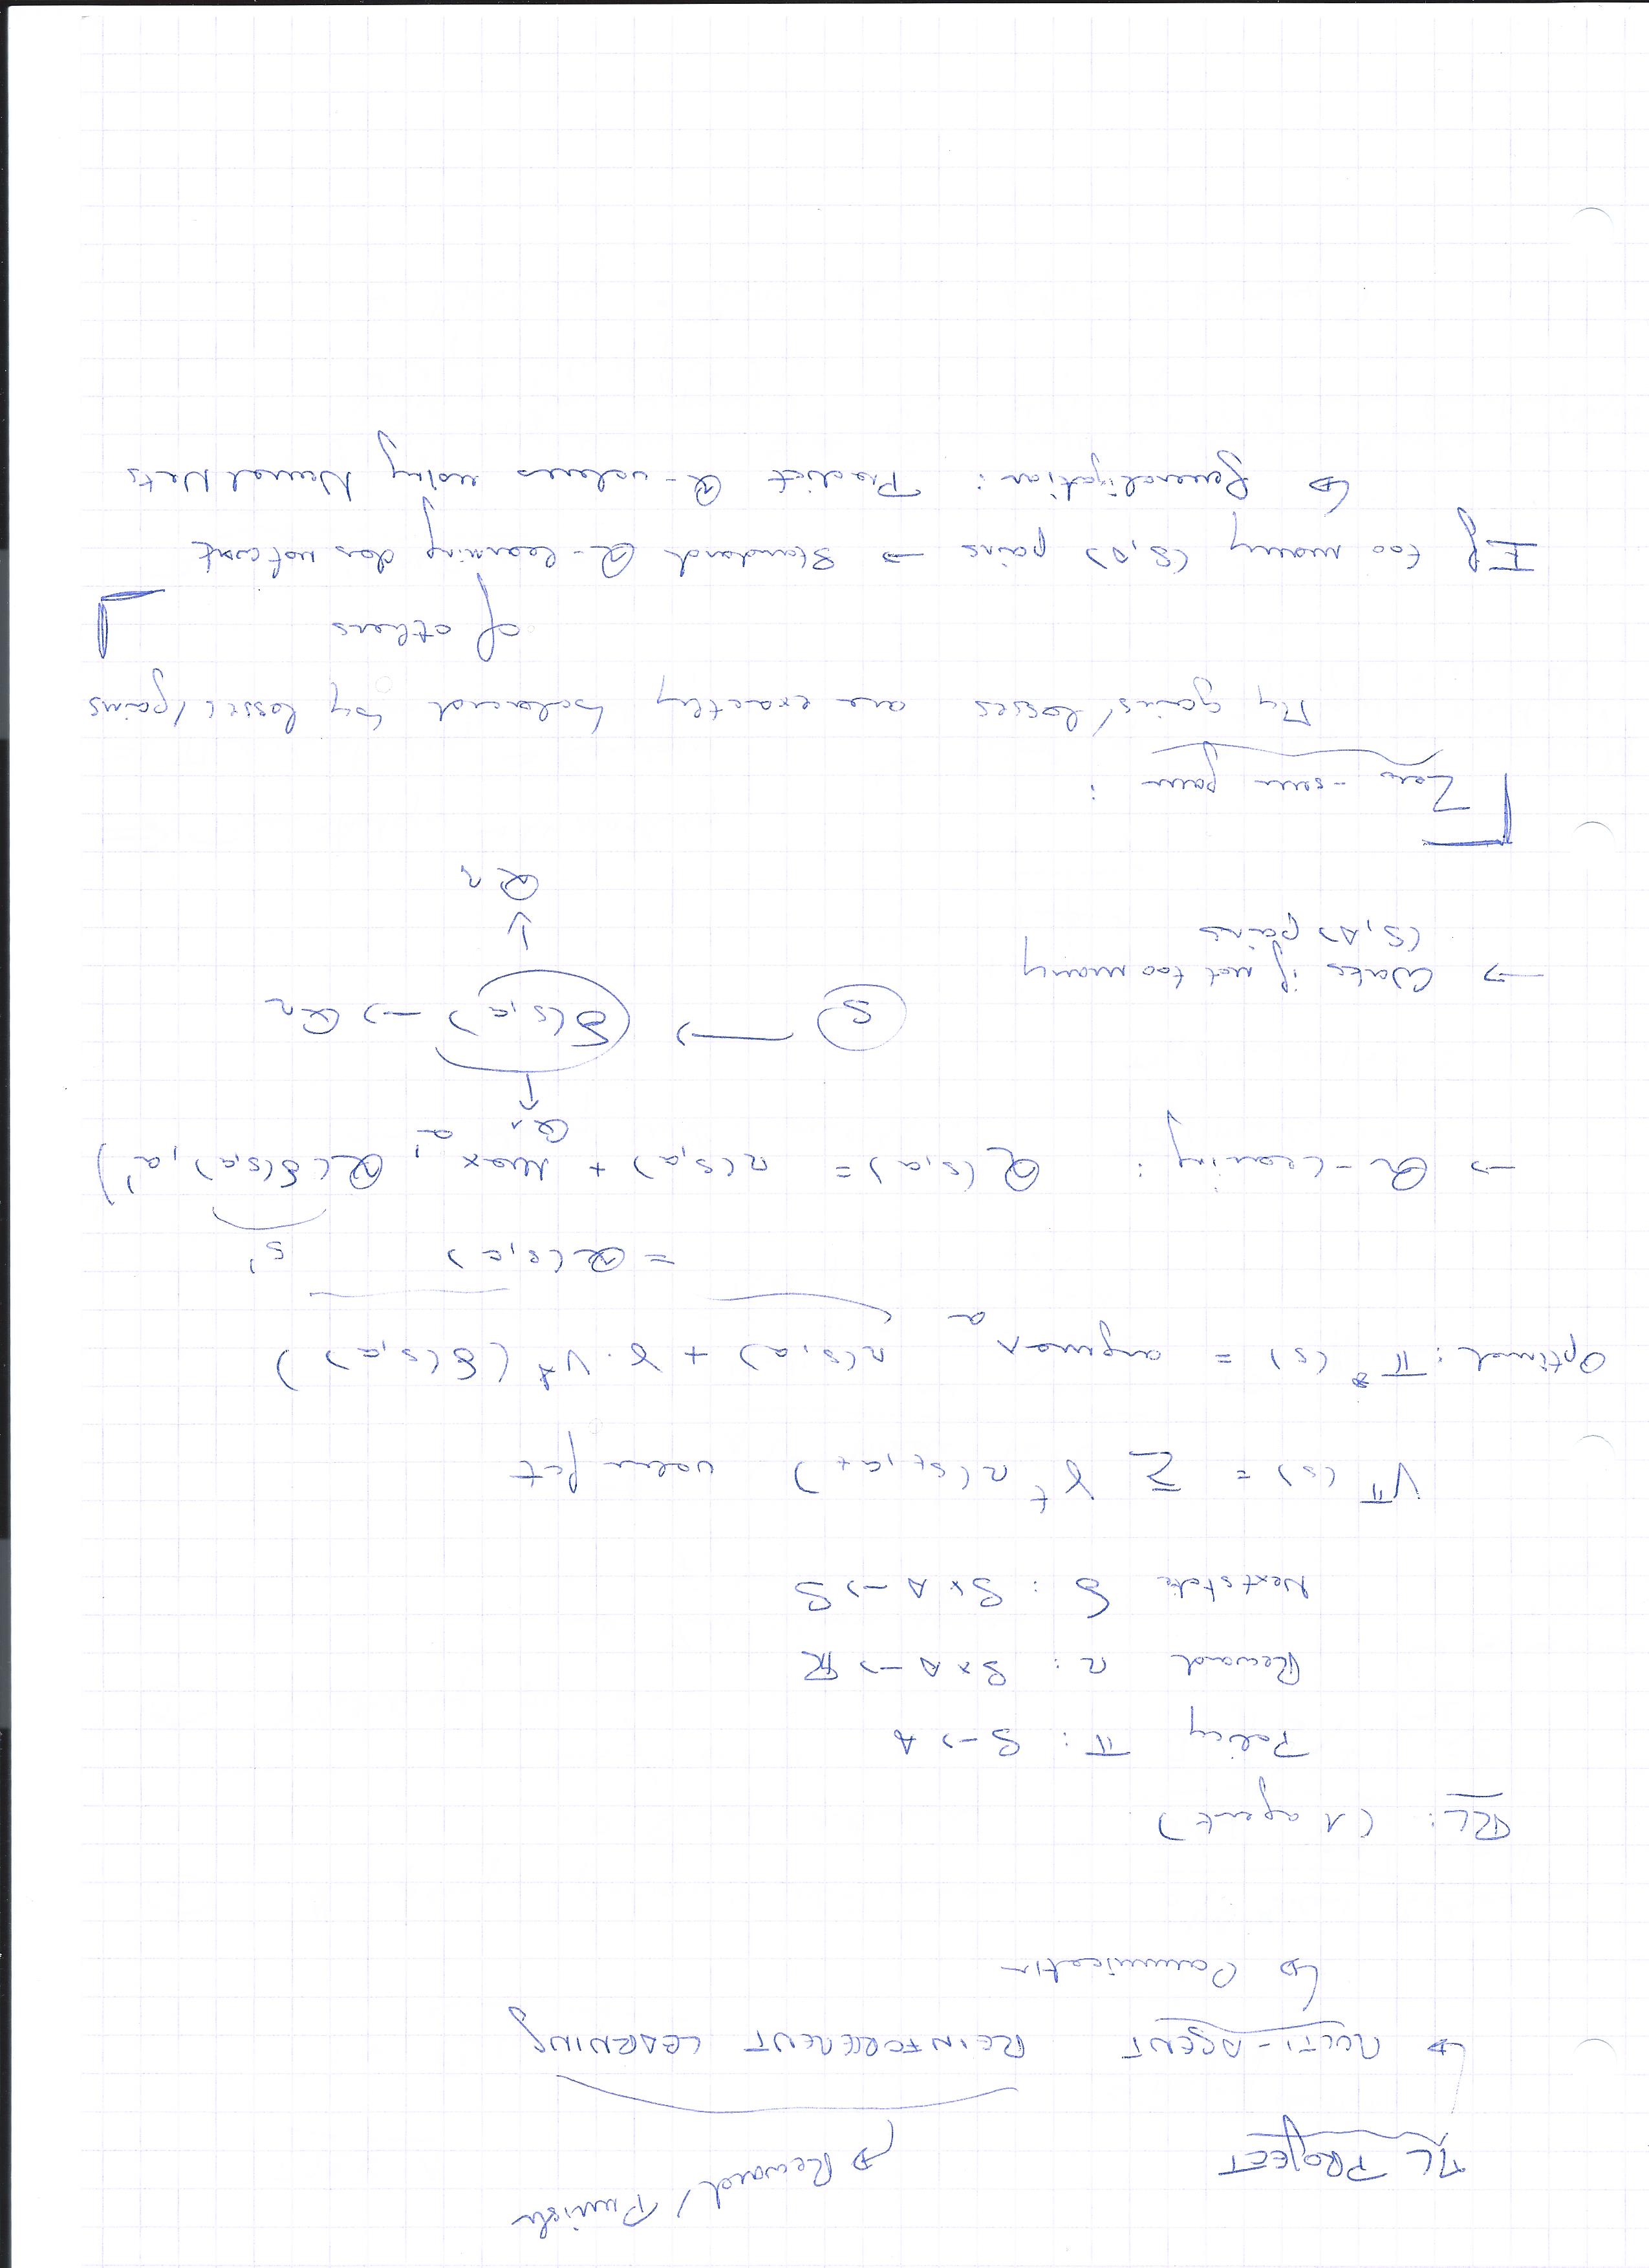 Reward / Punish
ML PROJECT
↳ MULTI-AGENT REINFORCEMENT LEARNING
↳ Communication
RL: (1 agent)
Policy π: S → A
Reward r: S × A → ℝ
Next state δ: S × A → S
V^π (s) = Σ γ^t r(s_t, a_t) value fct
Optimal: π* (s) = argmax_a r(s,a) + γ · V* (δ(s,a))
= Q(s,a) s'
→ Q-learning: Q(s,a) = r(s,a) + max_a' Q(δ(s,a), a')
Q1
↑
S → δ(s,a) → Q2
→ Works if not too many
(S,A) pairs
↓
Q3
Zero-sum game:
My gains/losses are exactly balanced by losses/gains
of others
If too many (S,A) pairs → Standard Q-learning does not work
↳ Generalization: Predict Q-values using Neural Nets